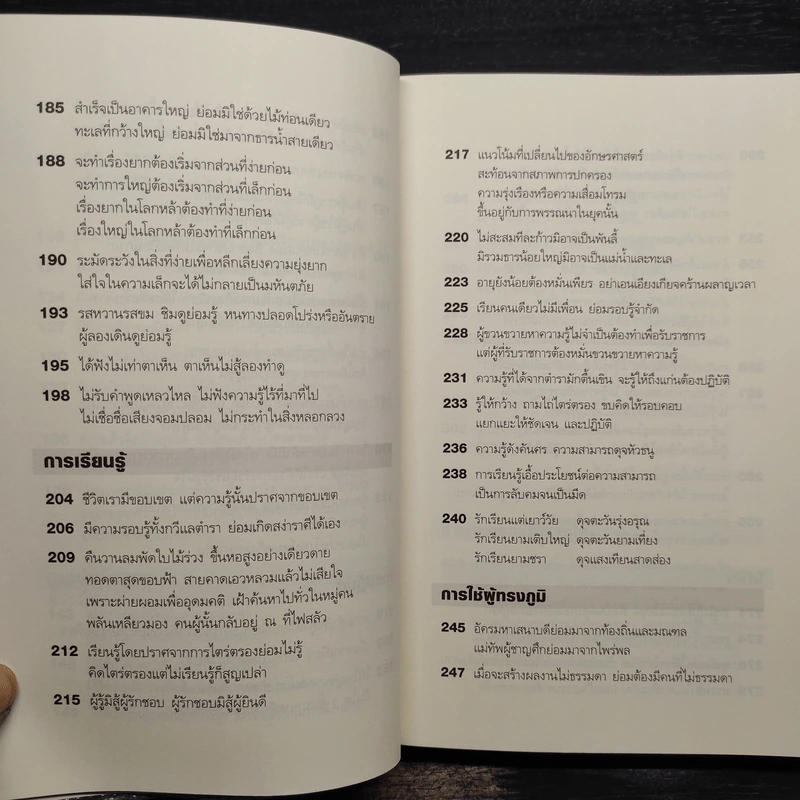 185 สำเร็จเป็นอาคารใหญ่ ย่อมมิใช่ด้วยไม้ท่อนเดียว
ทะเลที่กว้างใหญ่ ย่อมมิใช่มาจากธารน้ำสายเดียว
188 จะทำเรื่องยากต้องเริ่มจากส่วนที่ง่ายก่อน
จะทำการใหญ่ต้องเริ่มจากส่วนที่เล็กก่อน
เรื่องยากในโลกหล้าต้องทำที่ง่ายก่อน
เรื่องใหญ่ในโลกหล้าต้องทำที่เล็กก่อน
190 ระมัดระวังในสิ่งที่ง่ายเพื่อหลีกเลี่ยงความยุ่งยาก
ใส่ใจในความเล็กจะได้ไม่กลายเป็นมหันตภัย
193 รสหวานรสขม ชิมดูย่อมรู้ หนทางปลอดโปร่งหรืออันตราย
ผู้ลองเดินดูย่อมรู้
195 ได้ฟังไม่เท่าตาเห็น ตาเห็นไม่สู้ลองทำดู
198 ไม่รับคำพูดเหลวไหล ไม่ฟังความรู้ไร้ที่มาที่ไป
ไม่เชื่อชื่อเสียงจอมปลอม ไม่กระทำในสิ่งหลอกลวง
การเรียนรู้
204 ชีวิตเรามีขอบเขต แต่ความรู้นั้นปราศจากขอบเขต
206 มีความรอบรู้ทั้งกวีแลตำรา ย่อมเกิดสง่าราศีได้เอง
209 คืนวานลมพัดใบไม้ร่วง ขึ้นหอสูงอย่างเดียวดาย
ทอดตาสุดขอบฟ้า สายคาดเอวหลวมแล้วไม่เสียใจ
เพราะผ่ายผอมเพื่ออุดมคติ เฝ้าค้นหาไปทั่วในหมู่คน
พลันเหลียวมอง คนผู้นั้นกลับอยู่ ณ ที่ไฟสลัว
212 เรียนรู้โดยปราศจากการไตร่ตรองย่อมไม่รู้
คิดไตร่ตรองแต่ไม่เรียนรู้ก็สูญเปล่า
215 ผู้รู้มิสู้ผู้รักชอบ ผู้รักชอบมิสู้ผู้ยินดี
217 แนวโน้มที่เปลี่ยนไปของอักษรศาสตร์
สะท้อนจากสภาพการปกครอง
ความรุ่งเรืองหรือความเสื่อมโทรม
ขึ้นอยู่กับการพรรณนาในยุคนั้น
220 ไม่สะสมทีละก้าวมิอาจเป็นพันลี้
มิรวมธารน้อยใหญ่มิอาจเป็นแม่น้ำและทะเล
223 อายุยังน้อยต้องหมั่นเพียร อย่าเอนเอียงเกียจคร้านผลาญเวลา
225 เรียนคนเดียวไม่มีเพื่อน ย่อมรอบรู้จำกัด
228 ผู้ขวนขวายหาความรู้ไม่จำเป็นต้องทำเพื่อรับราชการ
แต่ผู้ที่รับราชการต้องหมั่นขวนขวายหาความรู้
231 ความรู้ที่ได้จากตำรามักตื้นเขิน จะรู้ให้ถึงแก่นต้องปฏิบัติ
233 รู้ให้กว้าง ถามไถ่ไตร่ตรอง ขบคิดให้รอบคอบ
แยกแยะให้ชัดเจน และปฏิบัติ
236 ความรู้ดั่งคันศร ความสามารถดุจหัวธนู
238 การเรียนรู้เอื้อประโยชน์ต่อความสามารถ
เป็นการลับคมจนเป็นมีด
240 รักเรียนแต่เยาว์วัย ดุจตะวันรุ่งอรุณ
รักเรียนยามเติบใหญ่ ดุจตะวันยามเที่ยง
รักเรียนยามชรา ดุจแสงเทียนสาดส่อง
การใช้ผู้ทรงภูมิ
245 อัครมหาเสนาบดีย่อมมาจากท้องถิ่นและมณฑล
แม่ทัพผู้ชาญศึกย่อมมาจากไพร่พล
247 เมื่อจะสร้างผลงานไม่ธรรมดา ย่อมต้องมีคนที่ไม่ธรรมดา